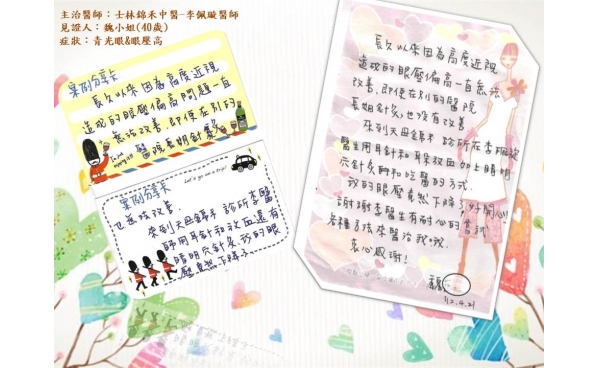 主治醫師：士林錦禾中醫-李佩璇醫師
見證人：魏小姐(40歲)
症狀：青光眼&眼壓高
案例分享卡
長久以來因為高度近視
造成的眼壓偏高問題一直
無法改善,即使在別的
醫院長期針灸
案例分享卡
也無法改善.
來到天母錦禾 診所李醫
師用耳針和放血還有
睛明穴針灸,我的眼
壓竟然下降了
Let's go on a trip!
長久以來因為高度近視
造成的眼壓偏高一直無法
改善,即使在別的醫院
長期針灸,也沒有改善
來到天母錦禾 診所在李佩璇
醫生用耳針和耳朵放血加上睛明
穴針灸和吃藥的方式.
我的眼壓竟然下降了,好開心!
謝謝李醫生有耐心的嘗試
各種方法來醫治我的
衷心感謝!
魏
112.4.21